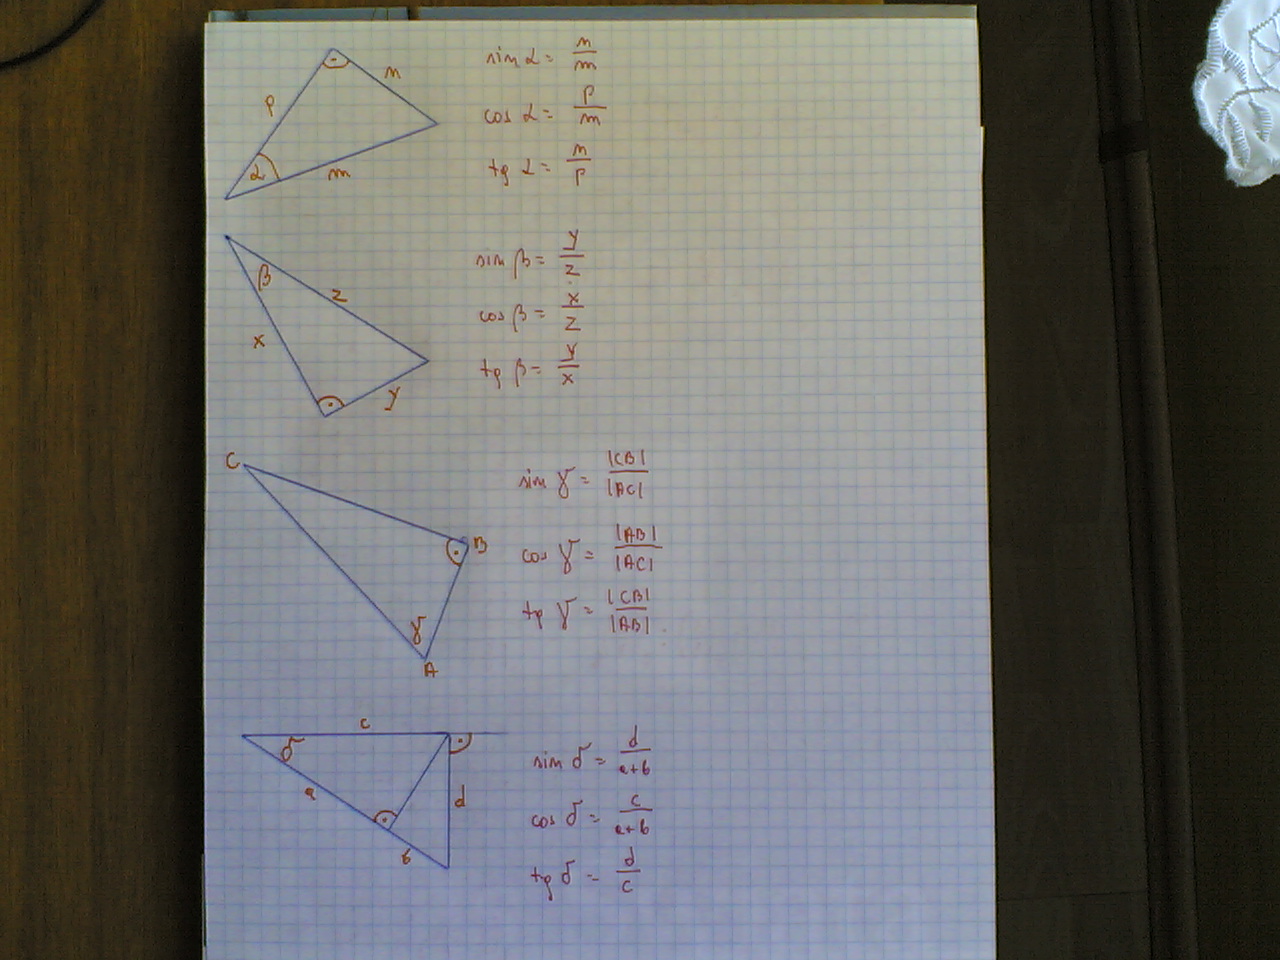 p
n
α
m
sin α = n/m
cos α = p/m
tg α = n/p
β
z
x
y
sin β = y/z
cos β = x/z
tg β = y/x
C
B
γ
A
sin γ = |CB|/|AC|
cos γ = |AB|/|AC|
tg γ = |CB|/|AB|
c
δ
a
d
b
sin δ = d/a+b
cos δ = c/a+b
tg δ = d/c